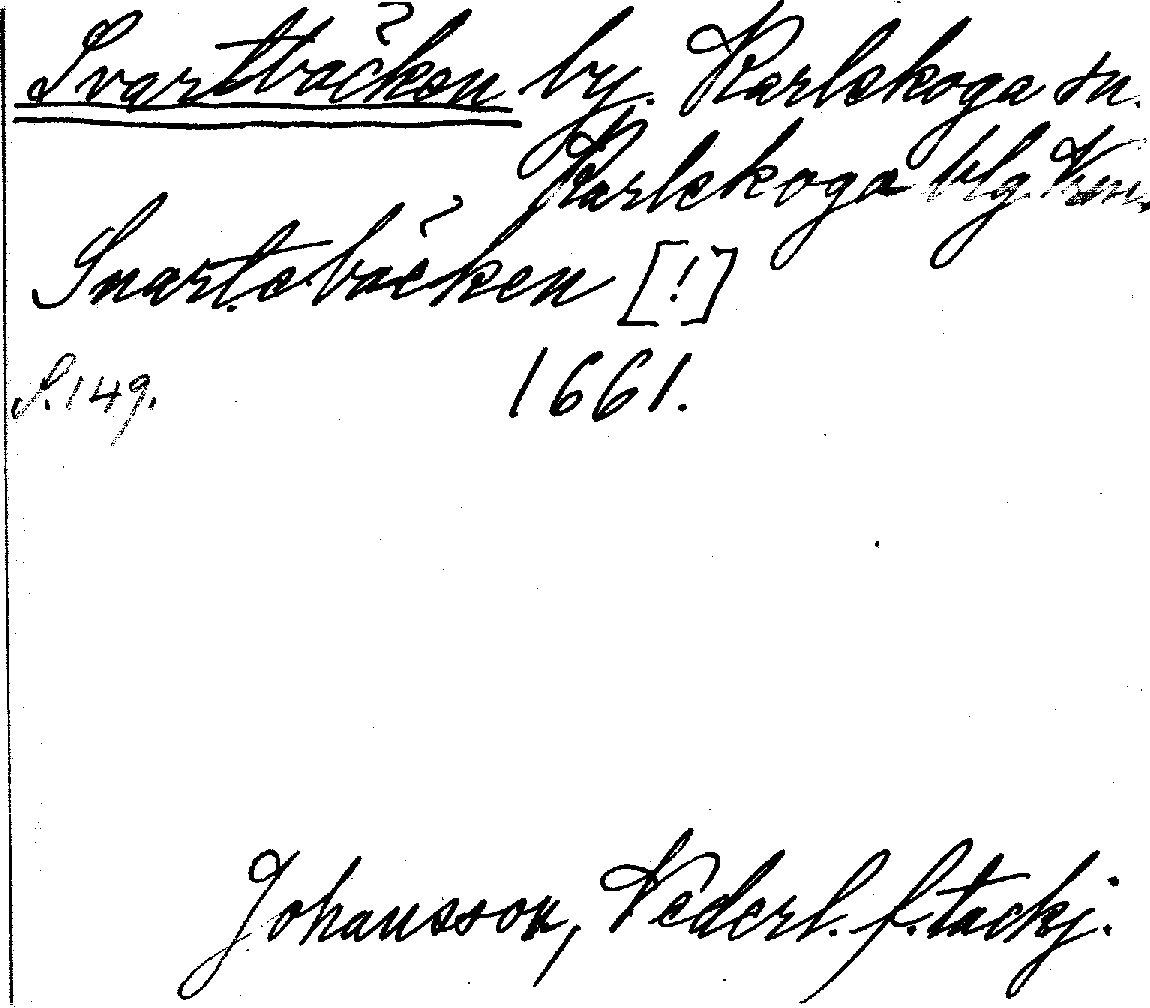 Svartbäcken by. Karlskoga sn.
Karlskoga blg. Vrm.
Snartebäcken [!]
S. 149. 1661.
Johansson, Nederl. f. tackj.